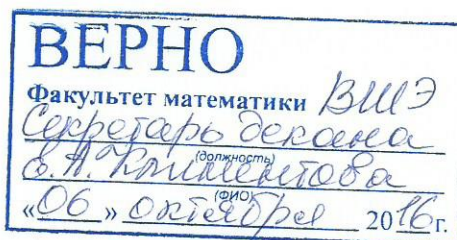 ВЕРНО
Факультет математики ВШЭ
Секретарь декана
(должность)
Климентова
(ФИО)
«06» октября 2016г.